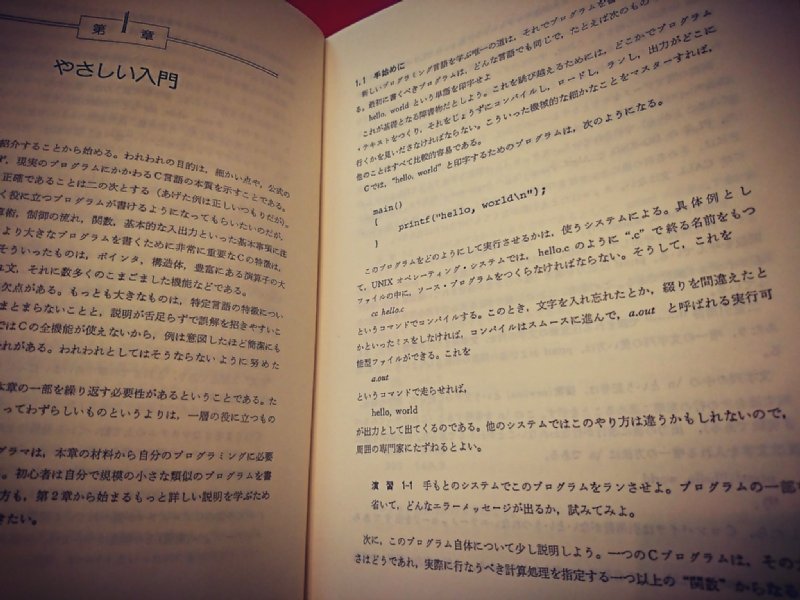 第 1 章
やさしい入門
紹介することから始める。われわれの目的は，細かい点や，公式の
ず，現実のプログラムにかかわるC言語の本質を示すことである。
正確であることは二の次とする（あげた例は正しいつもりだが）。
く役に立つプログラムが書けるようになってもらいたいのだが，
算術，制御の流れ，関数，基本的な入出力といった基本事項に注
より大きなプログラムを書くために非常に重要なCの特徴は，
そういったものは，ポインタ，構造体，豊富にある演算子の大
文，それに数多くのこまごました機能などである。
欠点がある。もっとも大きなものは，特定言語の特徴につい
まとまらないことと，説明が舌足らずで誤解を招きやすいこ
ではCの全機能が使えないから，例は意図したほど簡潔にも
れがある。われわれとしてはそうならないように努めた
本章の一部を繰り返す必要性があるということである。た
ってわずらしいものというよりは，一層の役に立つもの
グラマは，本章の材料から自分のプログラミングに必要
。初心者は自分で規模の小さな類似のプログラムを書
方も，第2章から始まるもっと詳しい説明を学ぶため
きたい。
1.1 手始めに
新しいプログラミング言語を学ぶ唯一の道は，それでプログラムを書
る。最初に書くべきプログラムは，どんな言語でも同じで，たとえば次のもの
hello, world という単語を印字せよ
これが基礎となる障害物だとしよう。これを跳び越えるためには，どこかでプログラム
・テキストをつくり，それをじょうずにコンパイルし，ロードし，ランし，出力がどこに
行くかを見いださなければならない。こういった機械的な細かなことをマスターすれば，
他のことはすべて比較的容易である。
Cでは，"hello, world" と印字するためのプログラムは，次のようになる。
main()
{ printf("hello, world\n");
}
このプログラムをどのようにして実行させるかは，使うシステムによる。具体例とし
て，UNIX オペレーティング・システムでは，hello.c のように ".c" で終る名前をもつ
ファイルの中に，ソース・プログラムをつくらなければならない。そうして，これを
cc hello.c
というコマンドでコンパイルする。このとき，文字を入れ忘れたとか，綴りを間違えたと
かといったミスをしなければ，コンパイルはスムースに進んで，a.out と呼ばれる実行可
能型ファイルができる。これを
a.out
というコマンドで走らせれば，
hello, world
が出力として出てくるのである。他のシステムではこのやり方は違うかもしれないので，
周囲の専門家にたずねるとよい。
演習 1-1 手もとのシステムでこのプログラムをランさせよ。プログラムの一部を
省いて，どんなエラーメッセージが出るか，試みてみよ。
次に，このプログラム自体について少し説明しよう。一つのCプログラムは，その大
さはどうであれ，実際に行なうべき計算処理を指定する一つ以上の "関数" からなる